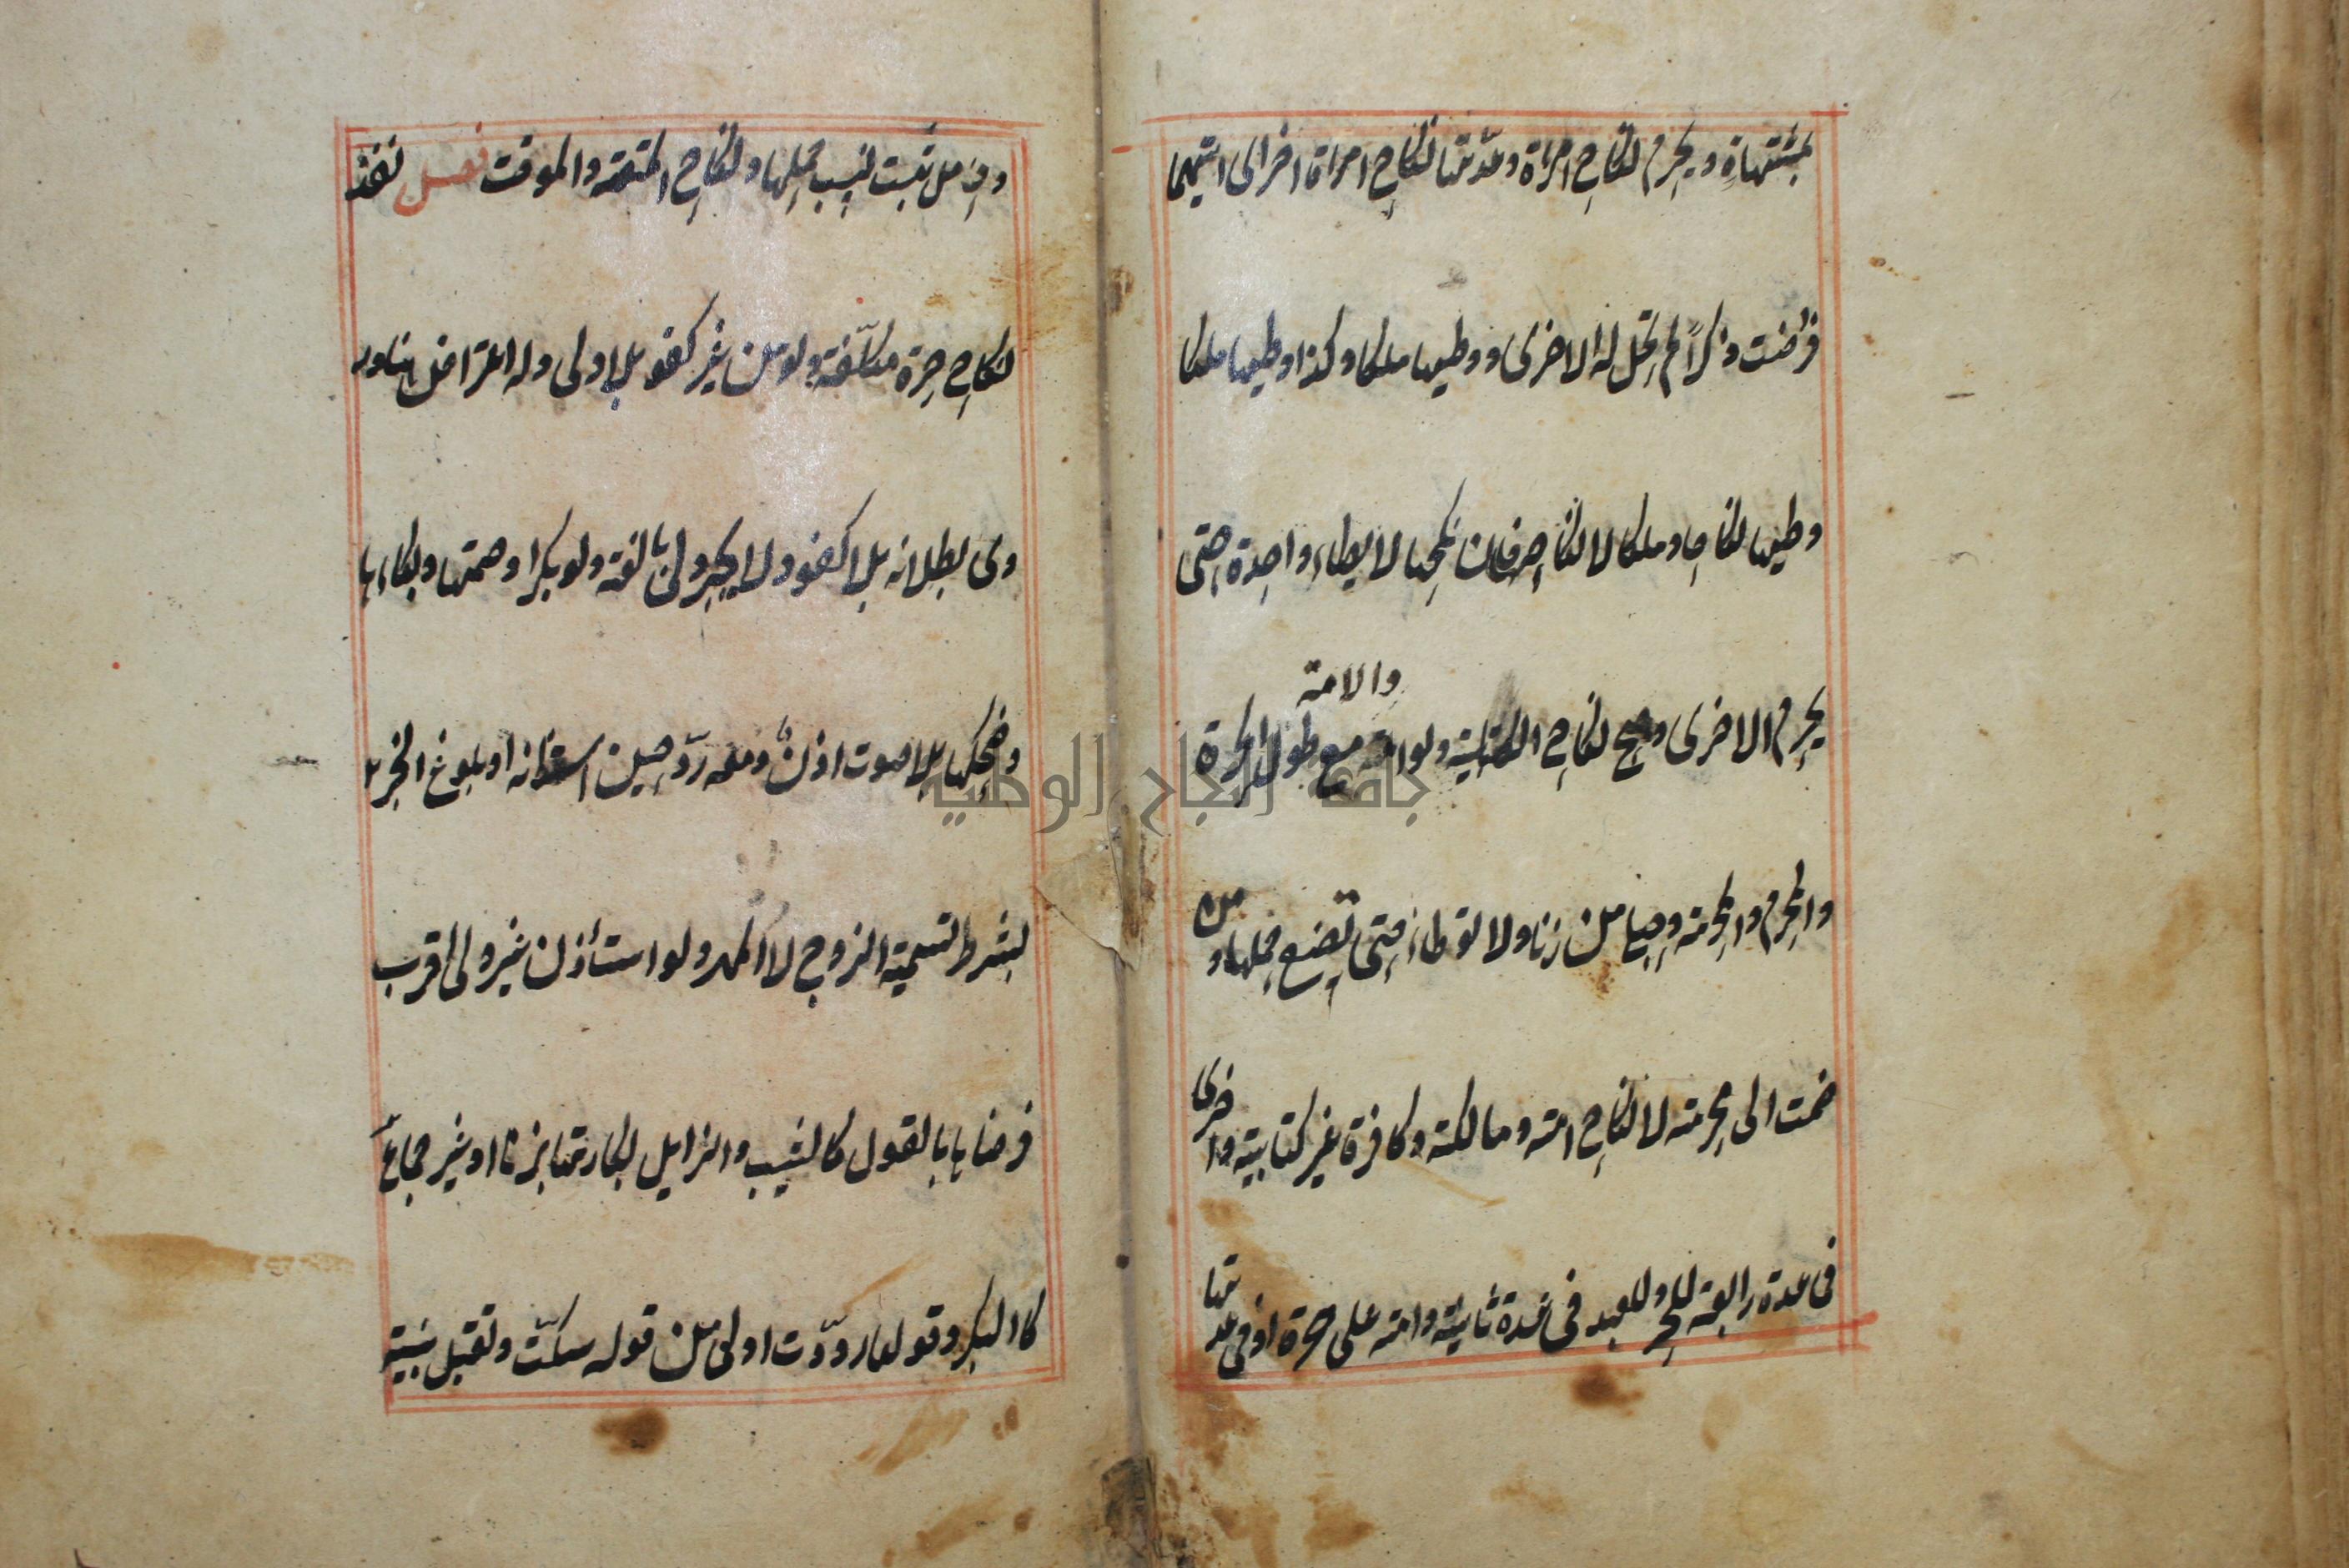 بمشتهاة ويحرم نكاح امرأة وعدتها نكاح امراة اخرى ايتهما
فرضت ذكرا لم تحل له الاخرى ووطيها ملكا وكذا وطيها ملكا
وطيها نكاحا وملكا لا نكاحه فان نكحها لا يطاء واحدة حتى
يحرم الاخرى وصح نكاح الكتابية ولو امة مع طول الحرة
والامة
والمحرم والمحرمة وحبلى من زنا ولا توطاء حتى تضع حملها ومن
ضمت الى محرمة لا نكاح امته ومالكته وكافرة غير كتابية واخرى
فى عدة رابعة للحر وللعبد فى عدة ثانية وامة على حرة او فى عدتها
وحامل ثبت نسب حملها ونكاح المتعة والموقت فصل نفذ
نكاح حرة مكلفة ولو من غير كفو بلا ولى وله الاعتراض هنا ور
وى بطلانه بلا كفو ولا يجبر ولى بالغة ولو بكرا وصمتها وبكاءها
وضحكها بلا صوت اذن ومعه رد حين استئذانه او بلوغ الخبر
بشرط تسمية الزوج لا المهر ولو استأذن غير ولى اقرب
فرضاها بالقول كالثيب والزايل بكارتها بزنا او غير جماع
كالبكر وقولها رددت اولى من قوله سكت وتقبل بنيته
جامعة النجاح الوطنية